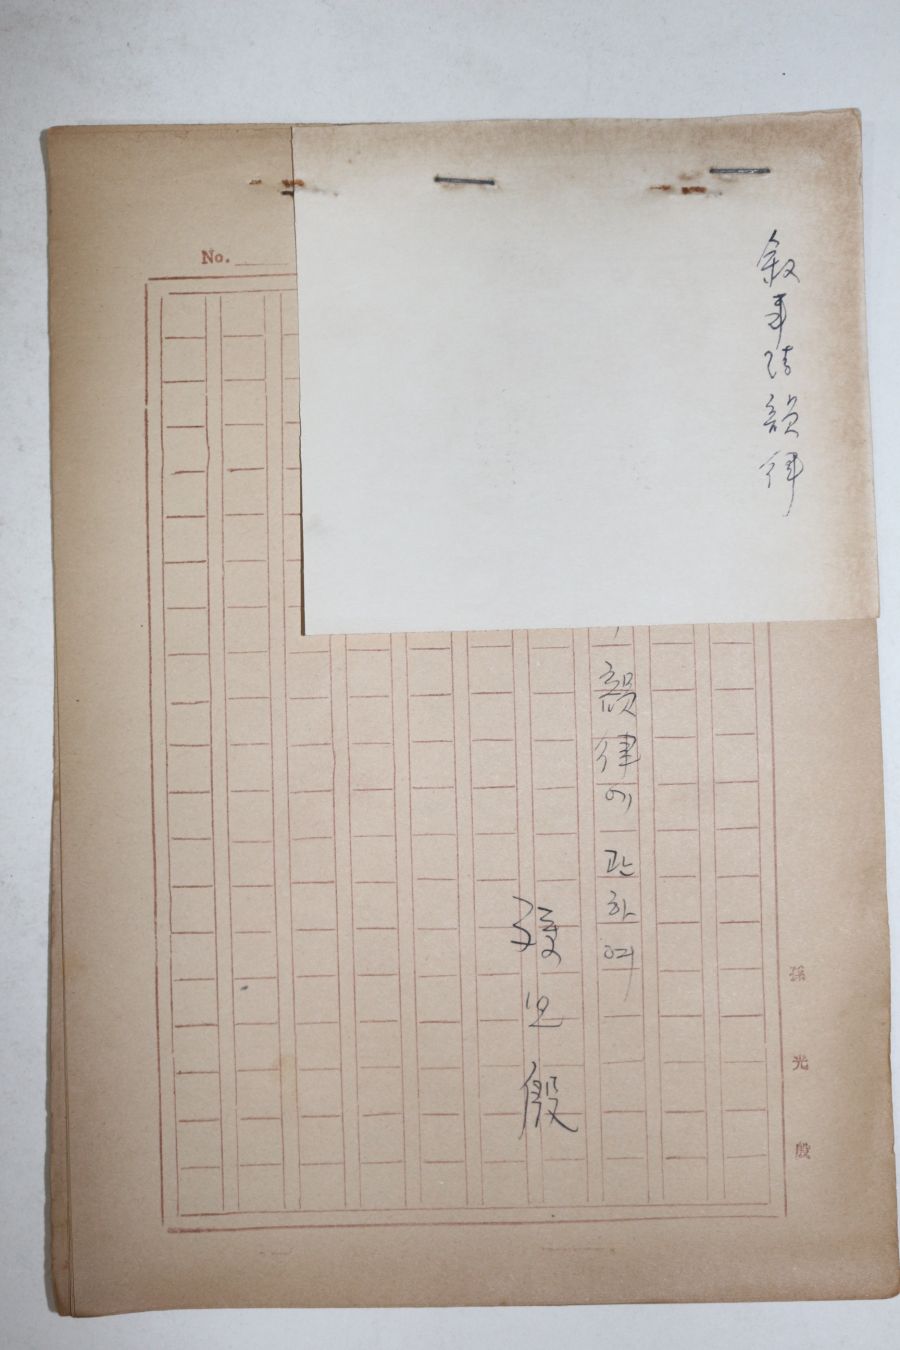 敘事詩韻律
韻律에 관하여
張光殷
No.
張光殷